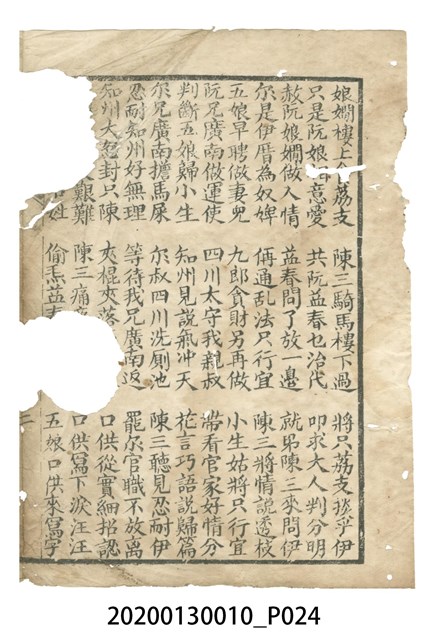 娘嫺樓上食荔支 陳三騎馬樓下過 將只荔支掞乎伊
只是阮娘意愛 共阮益春乜治代 叩求大人判分明
赦阮娘嫺做人情 益春問了放一邊 就弔陳三來問伊
尔是伊厝為奴婢 侢通乱法只行宜 陳三將情說透枝
五娘早聘做妻兒 九郎貪財另再做 小生姑將只行宜
阮兄廣南做運使 四川太守我親叔 帶看官家好情分
判斷五娘歸小生 知州見說氣冲天 花言巧語說歸篇
尔兄廣南擔馬屎 尔叔四川洗厠池 陳三聽見忍耐伊
忍耐知州好無理 等待我兄廣南返 罷尔官職不放离
知州大怒封只陳 夾棍夾落 口供從實細招認
艱難 陳三痛 口供寫下淚汪汪
姓 偷焄益春 五娘口供來寫字
20200130010_P024